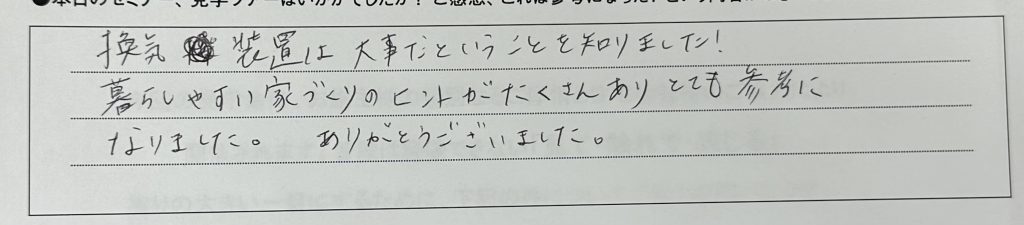 ●本日のセミナー、見学ツアーはいかがでしたか？ご感想、これは参考になった！という内容が
換気装置は大事だということを知りました!
暮らしやすい家づくりのヒントがたくさんありとても参考に
なりました。 ありがとうございました。